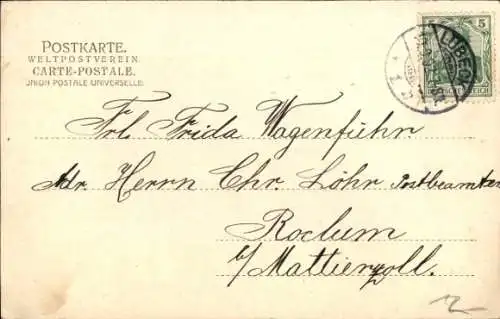 POSTKARTE.
WELTPOSTVEREIN.
CARTE-POSTALE.
UNION POSTALE UNIVERSELLE.
5
LÜBECK
Frl. Frida Wagenführ.
Adr. Herrn Chr. Löhr Postbeamter
Roclum
b/ Mattierzoll.